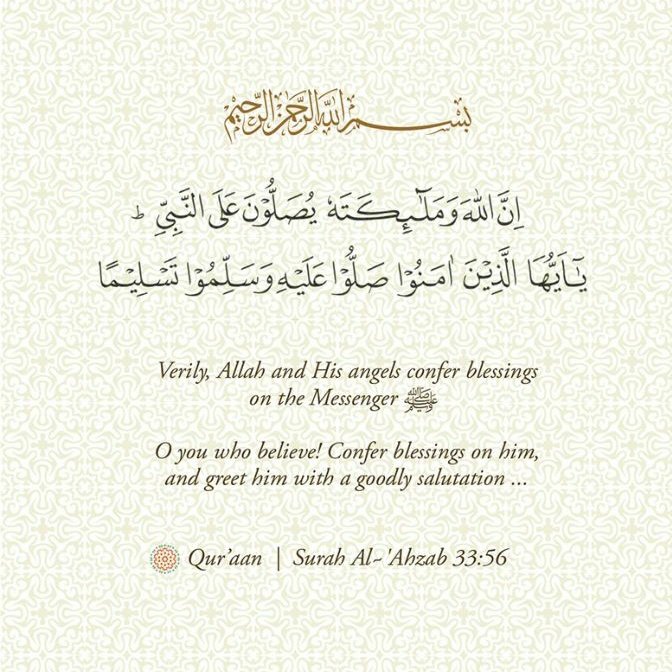 بِسْمِ اللهِ الرَّحْمٰنِ الرَّحِيْمِ
اِنَّ اللهَ وَمَلٰٓئِكَتَهٗ يُصَلُّوْنَ عَلَى النَّبِىِّ ؕ
يٰٓاَيُّهَا الَّذِيْنَ اٰمَنُوْا صَلُّوْا عَلَيْهِ وَسَلِّمُوْا تَسْلِيْمًا
Verily, Allah and His angels confer blessings
on the Messenger ﷺ
O you who believe! Confer blessings on him,
and greet him with a goodly salutation ...
Qur’aan | Surah Al-'Ahzab 33:56